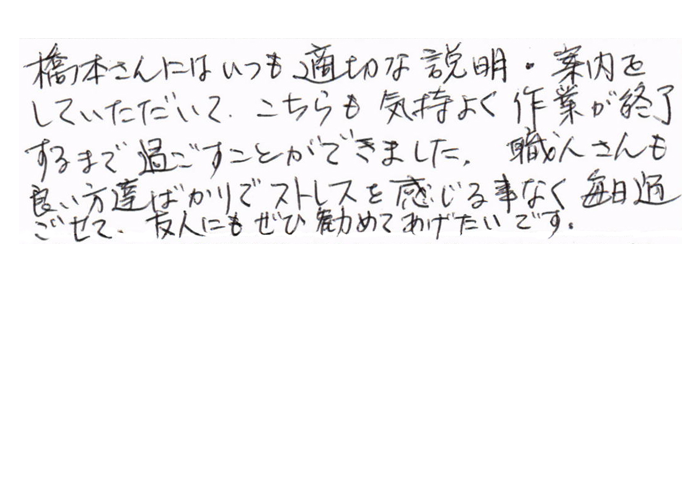 橋本さんにはいつも適切な説明・案内を
していただいて、こちらも気持よく作業が終了
するまで過ごすことができました。職人さんも
良い方達ばかりでストレスを感じる事なく毎日過
ごせて、友人にもぜひ勧めてあげたいです。